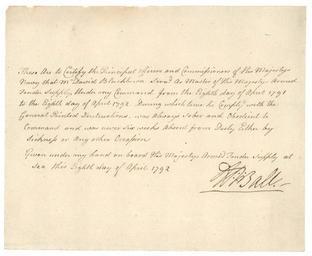 These Are to Certify the Principal Officers and Commissioners of His Majestys
Navy that Mr David Blackburn Servd As Master of His Majestys Armed
Tender Supply, Under my Command from the Eighth day of April 1791
to the Eighth day of April 1792. During which time he Complyd with the
General Printed Instructions, was always Sober and Obedient to
Command and was never six weeks absent from Duty Either by
Sickness or Any other Occasion
Given under my hand on board His Majestys Armed Tender Supply at
Sea this Eighth day of April 1792
Ball